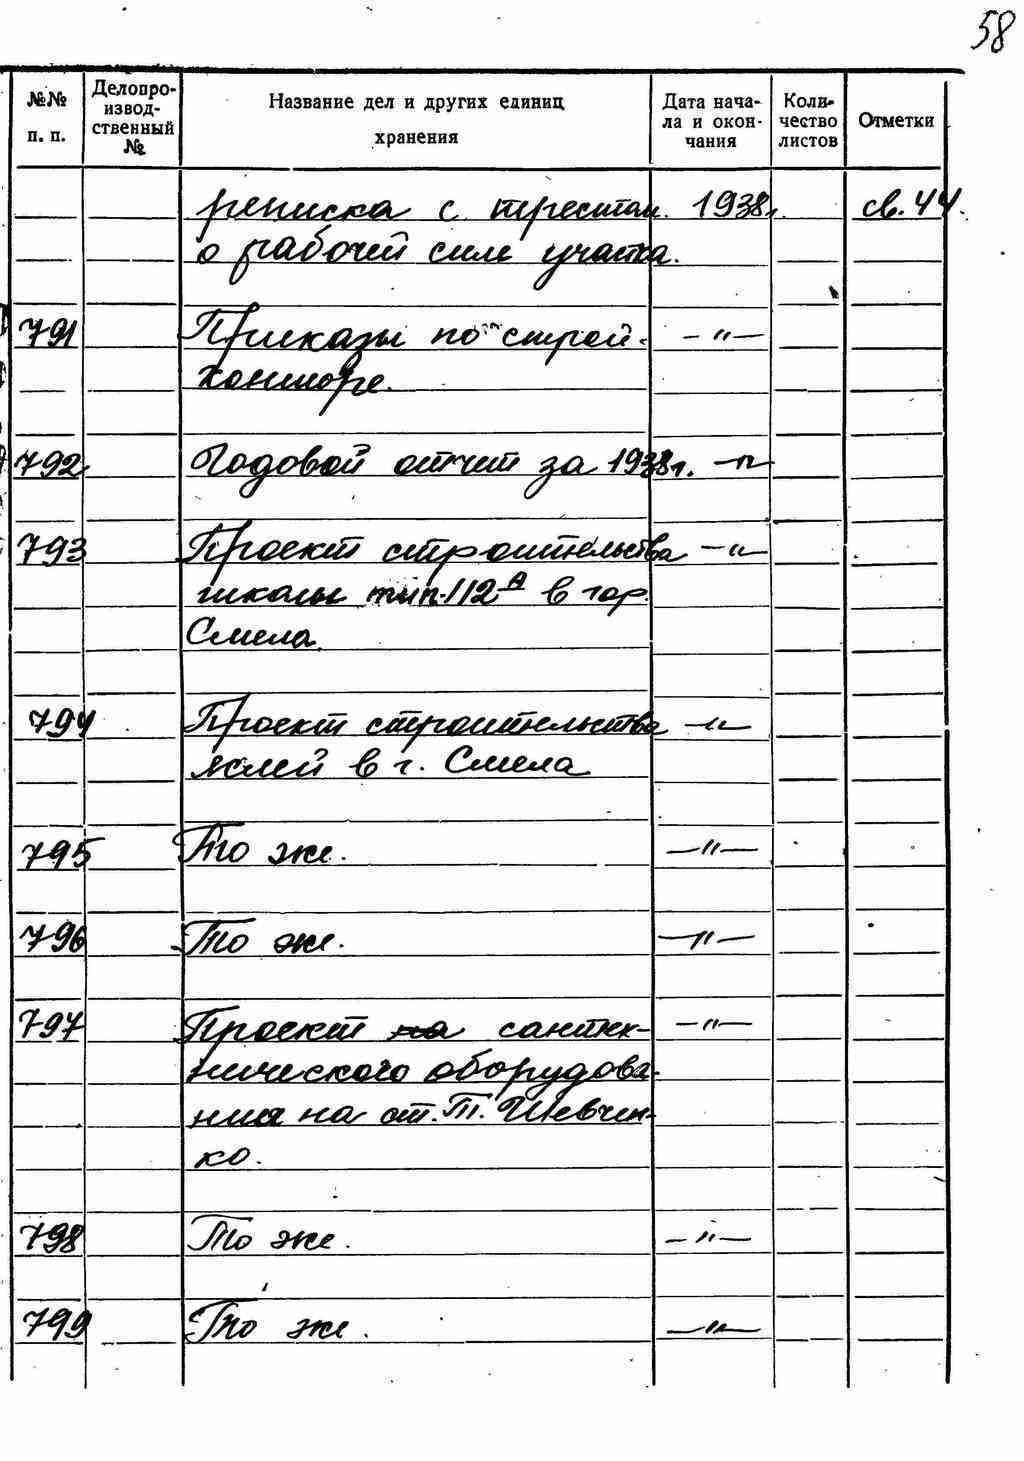 58
№№ п. п.
Делопро-
извод-
ственный
№
Название дел и других единиц
хранения
Дата нача-
ла и окон-
чания
Коли-
чество
листов
Отметки
реписка с трестом 1938г. св. 44.
о рабочей силе участка.
791 Приказы по строй- -"-
конторе.
792 Годовой отчет за 1938г. -"-
793 Проект строительства -"-
школы тип-112-А в гор.
Смела.
794 Проект строительства -"-
яслей в г. Смела
795 То же. -"-
796 То же. -"-
797 Проект на сантех- -"-
нического оборудова-
ния на ст. Т. Шевчен-
ко.
798 То же. -"-
799 То же. -"-